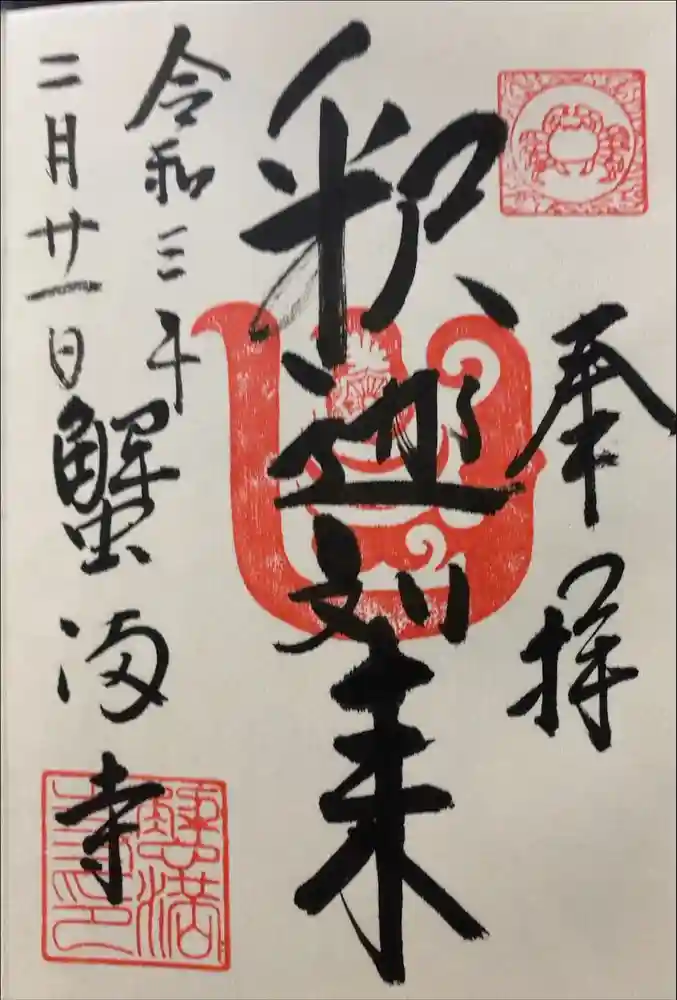 奉拝
釈迦如来
令和三年
二月廿一日
蟹満寺
蟹満
寺印